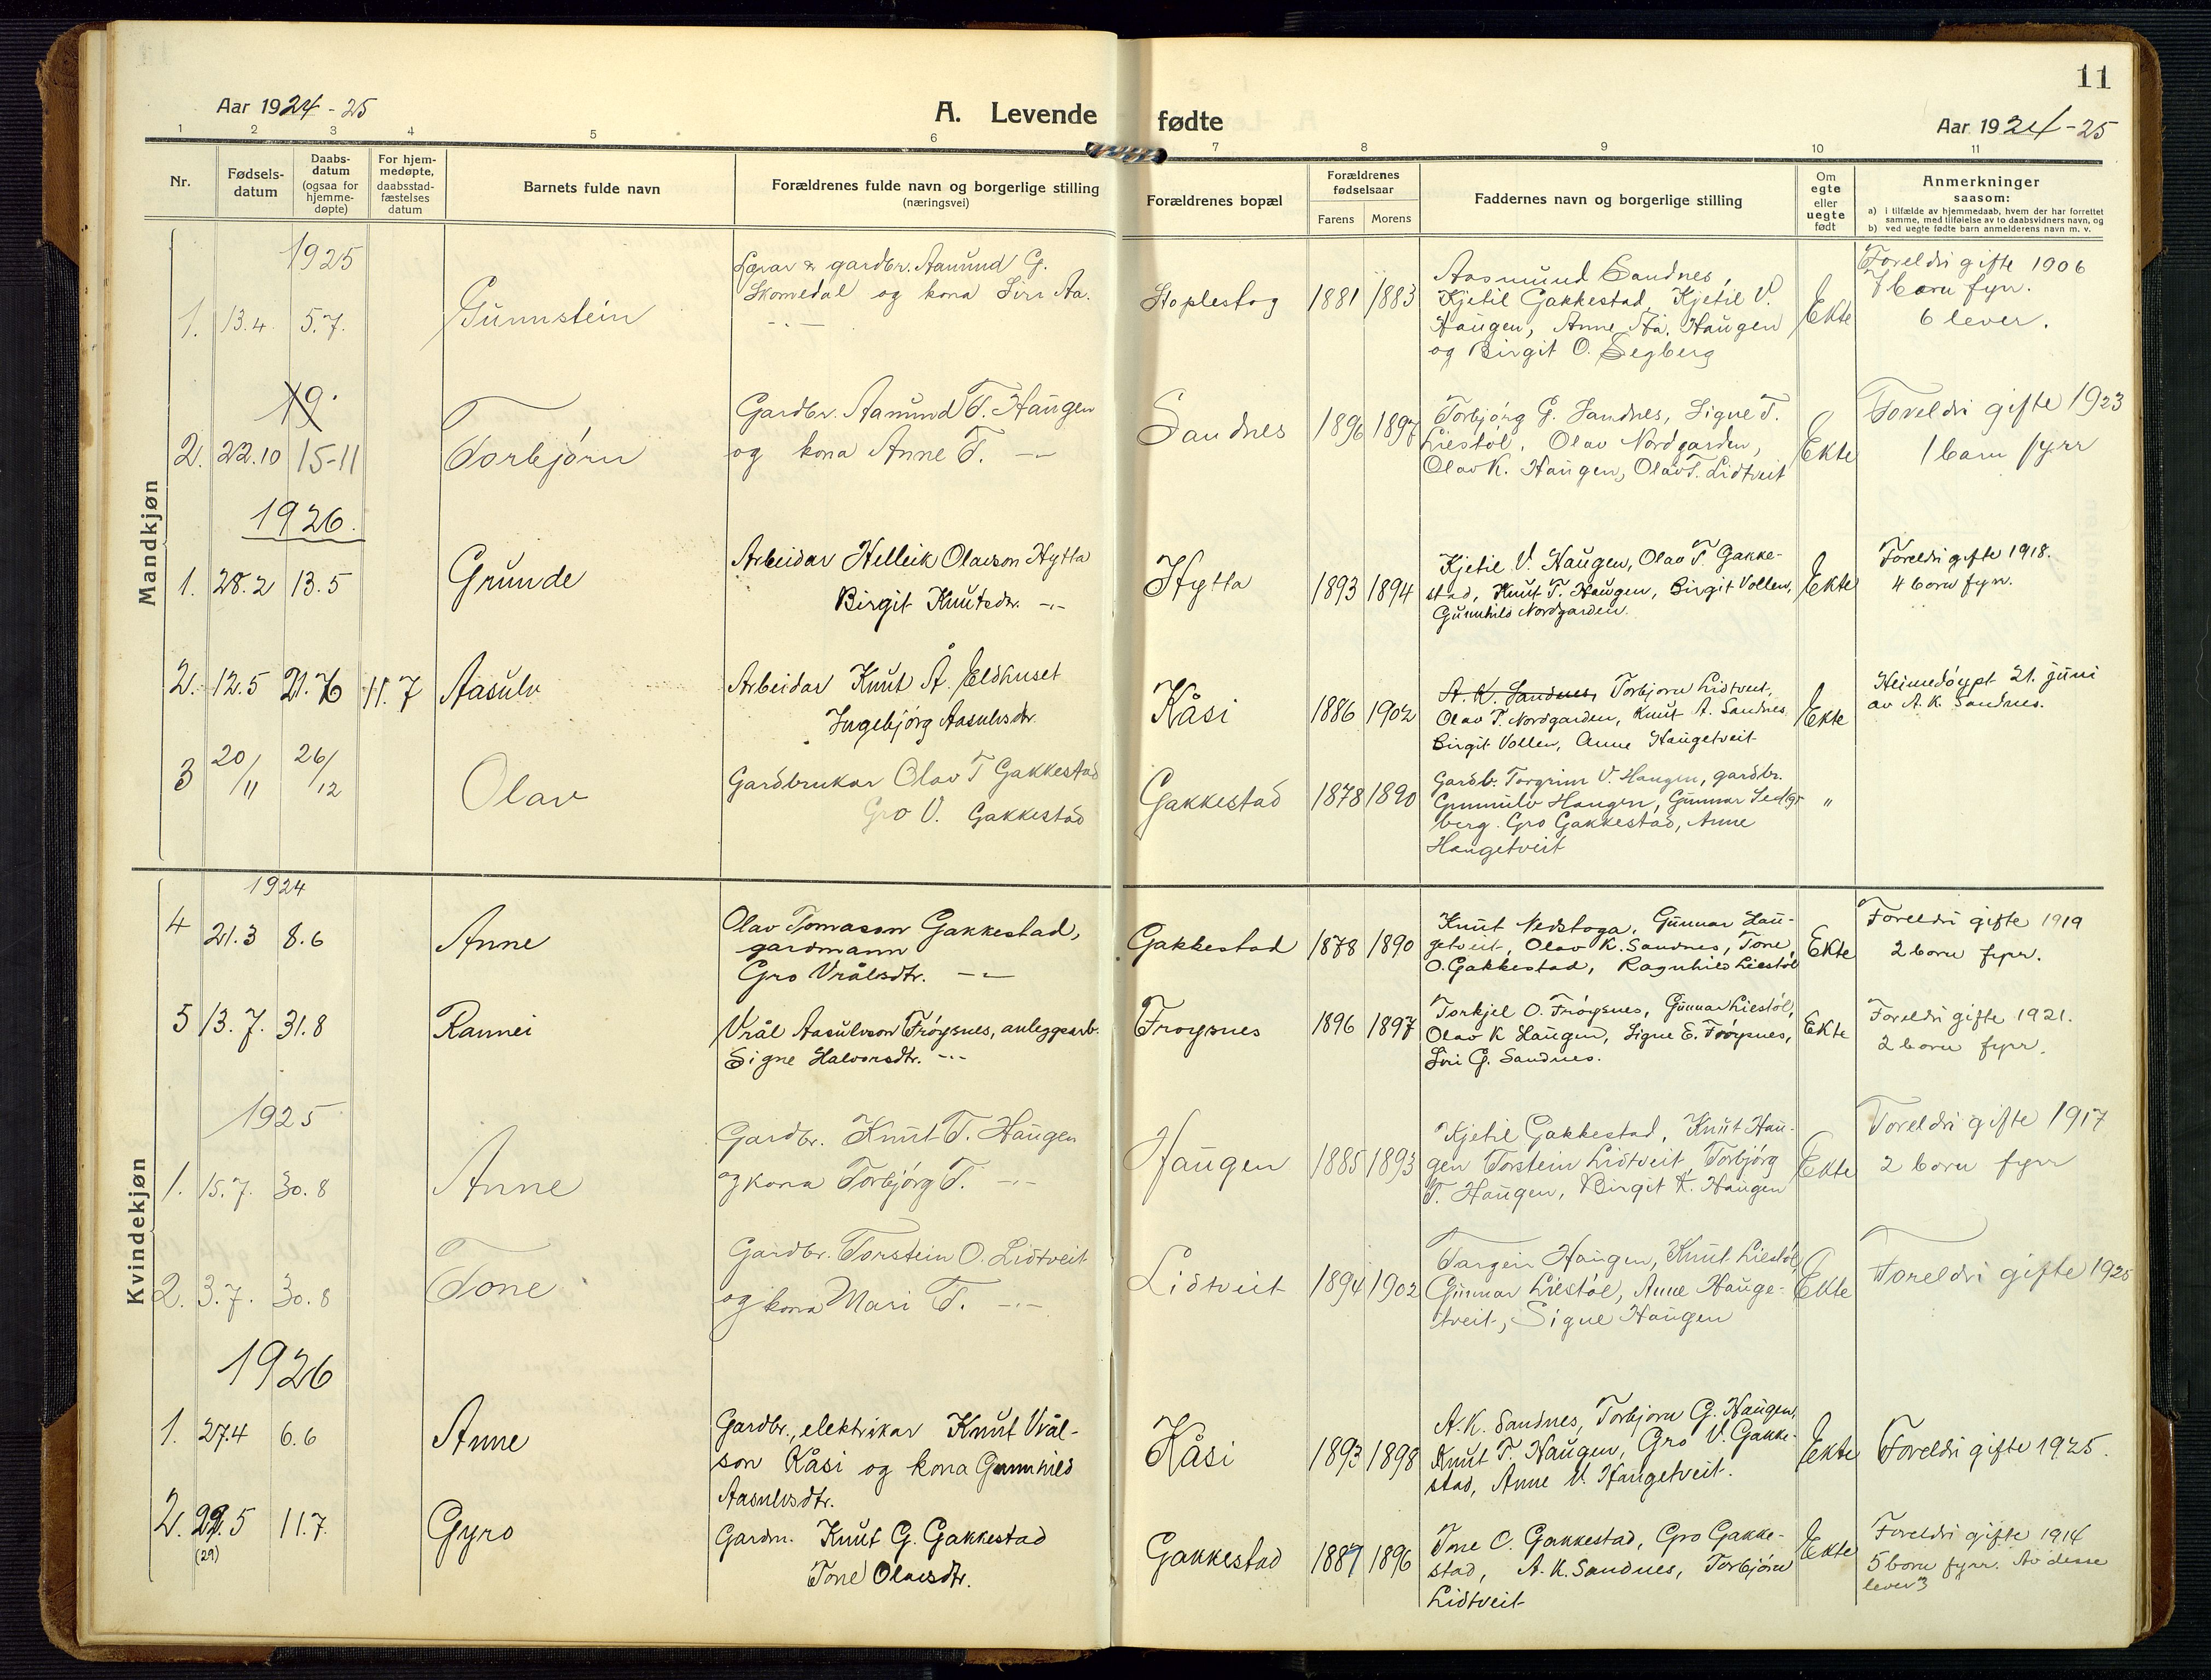 11
Aar 1924-25
A. Levende fødte
Aar 1924-25
1 2 3 4 5 6 7 8 9 10 11
Nr.
Fødsels-
datum
Daabs-
datum
(ogsaa for
hjemme-
døpte)
For hjem-
medøpte,
daabsstad-
fæstelses
datum
Barnets fulde navn
Forældrenes fulde navn og borgerlige stilling
(næringsvei)
Forældrenes bopæl
Forældrenes
fødselsaar
Farens Morens
Faddernes navn og borgerlige stilling
Om
egte
eller
uegte
født
Anmerkninger
saasom:
a) i tilfælde av hjemmedaab, hvem der har forrettet
samme, med tilføielse av to daabsvidners navn, og
b) ved uegte fødte barn anmelderens navn m. v.
Mandkjøn
1925
1. 13.4 5.7. Gunnstein
Lærar & gardbr. Aamund G.
Skomedal og kona Siri Aa.
-.-
Stoplestog 1881 1883
Aasmund Sandnes,
Kjetil Gakkestad, Kjetil V.
Haugen, Anne Aa. Haugen
og Birgit O. Segberg
Ekte
Foreldri gifte 1906
7 born fyrr.
6 lever.
19.
2. 22.10 15-11 Torbjörn
Gardbr. Aamund T. Haugen
og kona Anne T. -.-
Sandnes 1896 1897
Torbjörg G. Sandnes, Signe T.
Liestöl, Olav Nordgarden,
Olav K. Haugen, Olav T. Lidtveit
Ekte
Foreldri gifte 1923
1 barn fyrr
1926.
1. 28.2 13.5 Grunde
Arbeidar Helleik Olavson Hytta
Birgit Knutsdr. -.-
Hytta 1893 1894
Kjetil V. Haugen, Olav T. Gakke-
stad, Knut T. Haugen, Birgit Vollen,
Gunnhild Nordgarden.
Ekte
Foreldri gifte 1918.
4 born fyrr.
2. 12.5 21.6 11.7 Aasulv
Arbeidar Knut Å. Eldhuset
Ingebjörg Aasulvsdtr.
Kåsi 1886 1902
A. K. Sandnes, Torbjorn Lidtveit,
Olav T. Nordgarden, Knut A. Sandnes
Birgit Vollen, Anne Haugetveit
Ekte
Heimedöypt 21. juni
av A. K. Sandnes.
3 20/11 26/12 Olav
Gardbrukar Olav T Gakkestad
Gro V. Gakkestad
Gakkestad 1878 1890
Gardb. Torgrim V. Haugen, gardbr.
Gunnulv Haugen, Gunnar
berg. Gro Gakkestad, Anne
Haugetveit
"
Kvindekjøn
1924
4 21.3 8.6 Anne
Olav Tomasson Gakkestad,
gardmann
Gro Vrålsdtr. -.-
Gakkestad 1878 1890
Knut Nedstoga, Gunnar Hau-
getveit, Olav K. Sandnes, Tone
O. Gakkestad, Ragnhild Liestöl
Ekte
Foreldri gifte 1919
2 born fyrr.
5 13.7. 31.8 Rannei
Vrål Aasulvson Fröysnes, anleggsarb.
Signe Halvorsdtr. -.-
Froysnes 1896 1897
Torkjel O. Fröysnes, Gunnar Liestöl,
Olav K Haugen, Signe E. Fröysnes,
Siri G. Sandnes.
Ekte
Foreldri gifte 1921.
2 born fyrr.
1925
1. 15.7. 30.8 Anne
Gardbr. Knut T. Haugen
og kona Torbjörg T. -.-
Haugen 1885 1893
Kjetil Gakkestad, Knut Hau-
gen Torstein Lidtveit, Torbjörg
T. Haugen, Birgit K. Haugen
Ekte
Foreldri gifte 1917
2 born fyrr
2. 3.7. 30.8 Tone
Gardbr. Torstein O. Lidtveit
og kona Mari T. -.-
Lidtveit 1894 1902
Targei Haugen, Knut Liestöl,
Gunnar Liestöl, Anne Hauge-
tveit, Signe Haugen
Ekte
Foreldri gifte 1925
1926
1. 27.4 6.6 Anne
Gardbr., elektrikar Knut Vrål-
son Kåsi og kona Gunnhild
Aasulvsdtr.
Kåsi 1893 1898
A. K. Sandnes, Torbjorn G. Haugen,
Knut T. Haugen, Gro V. Gakke-
stad, Anne V. Haugetveit.
Ekte
Foreldri gifte 1925.
2. 22.5 11.7. Gyro
(29)
Gardm. Knut G. Gakkestad
Tone Olavsdtr.
Gakkestad 1887 1896
Tone O. Gakkestad, Gro Gakke-
stad, A. K. Sandnes, Torbjörn
Lidtveit
Ekte
Foreldri gifte 1914
5 born fyrr. Av desse
lever 3